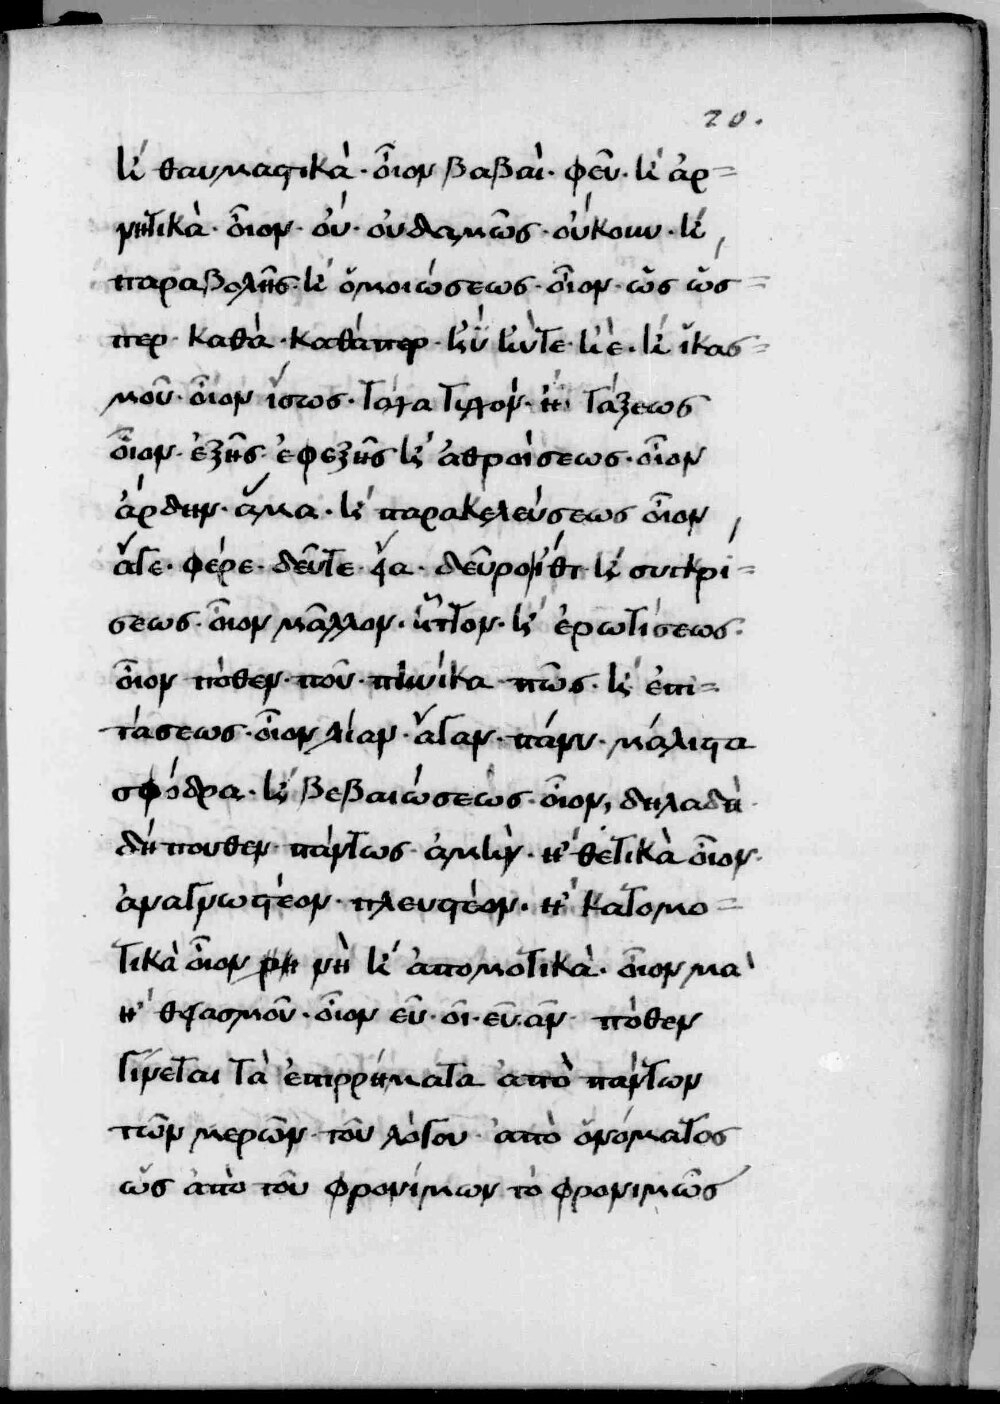 20.
κ θαυμαστικὰ· οἷον βαβαὶ· φεῦ· κ ἀρ=
νητικὰ· οἷον· οὐ· οὐδαμῶς· οὔκουν· κ
παραβολῆς· κ ὁμοιώσεως· οἷον· ὡς ὥς=
περ· καθὰ· καθάπερ· κ ἰκας=
μοῦ· οἷον ἴσως· τάχα τυχὸν· ἢ τάξεως
οἷον· ἐξῆς· ἐφεξῆς κ ἀθροίσεως· οἷον
ἄρδην· ἅμα· κ παρακελεύσεως οἷον
ἄγε· φέρε· δεῦτε· δεῦρο ἴθι· κ συγκρί=
σεως· οἷον μᾶλλον· ἧττον· κ ἐρωτίσεως·
οἷον πόθεν· ποῦ· πηνίκα πῶς· κ ἐπι=
τάσεως· οἷον λίαν· ἄγαν· πάνυ· μάλιστα
σφόδρα· κ βεβαιώσεως· οἷον, δηλαδὴ·
δήπουθεν· πάντως· ἀμὴν· κ θετικὰ οἷον·
ἀναγνωστέον· πλευστέον· κ κατομο=
τικὰ οἷον νὴ κ ἀπομοτικὰ· οἷον μὰ
κ θιασμοῦ· οἷον εὖ· οἷ· εὖ ἂν· πόθεν
γίνεται τὰ ἐπιρρήματα ἀπὸ πάντων
τῶν μερῶν τοῦ λόγου· ἀπὸ ὀνόματος
ὡς ἀπὸ τοῦ φρονίμων τὸ φρονιμῶς